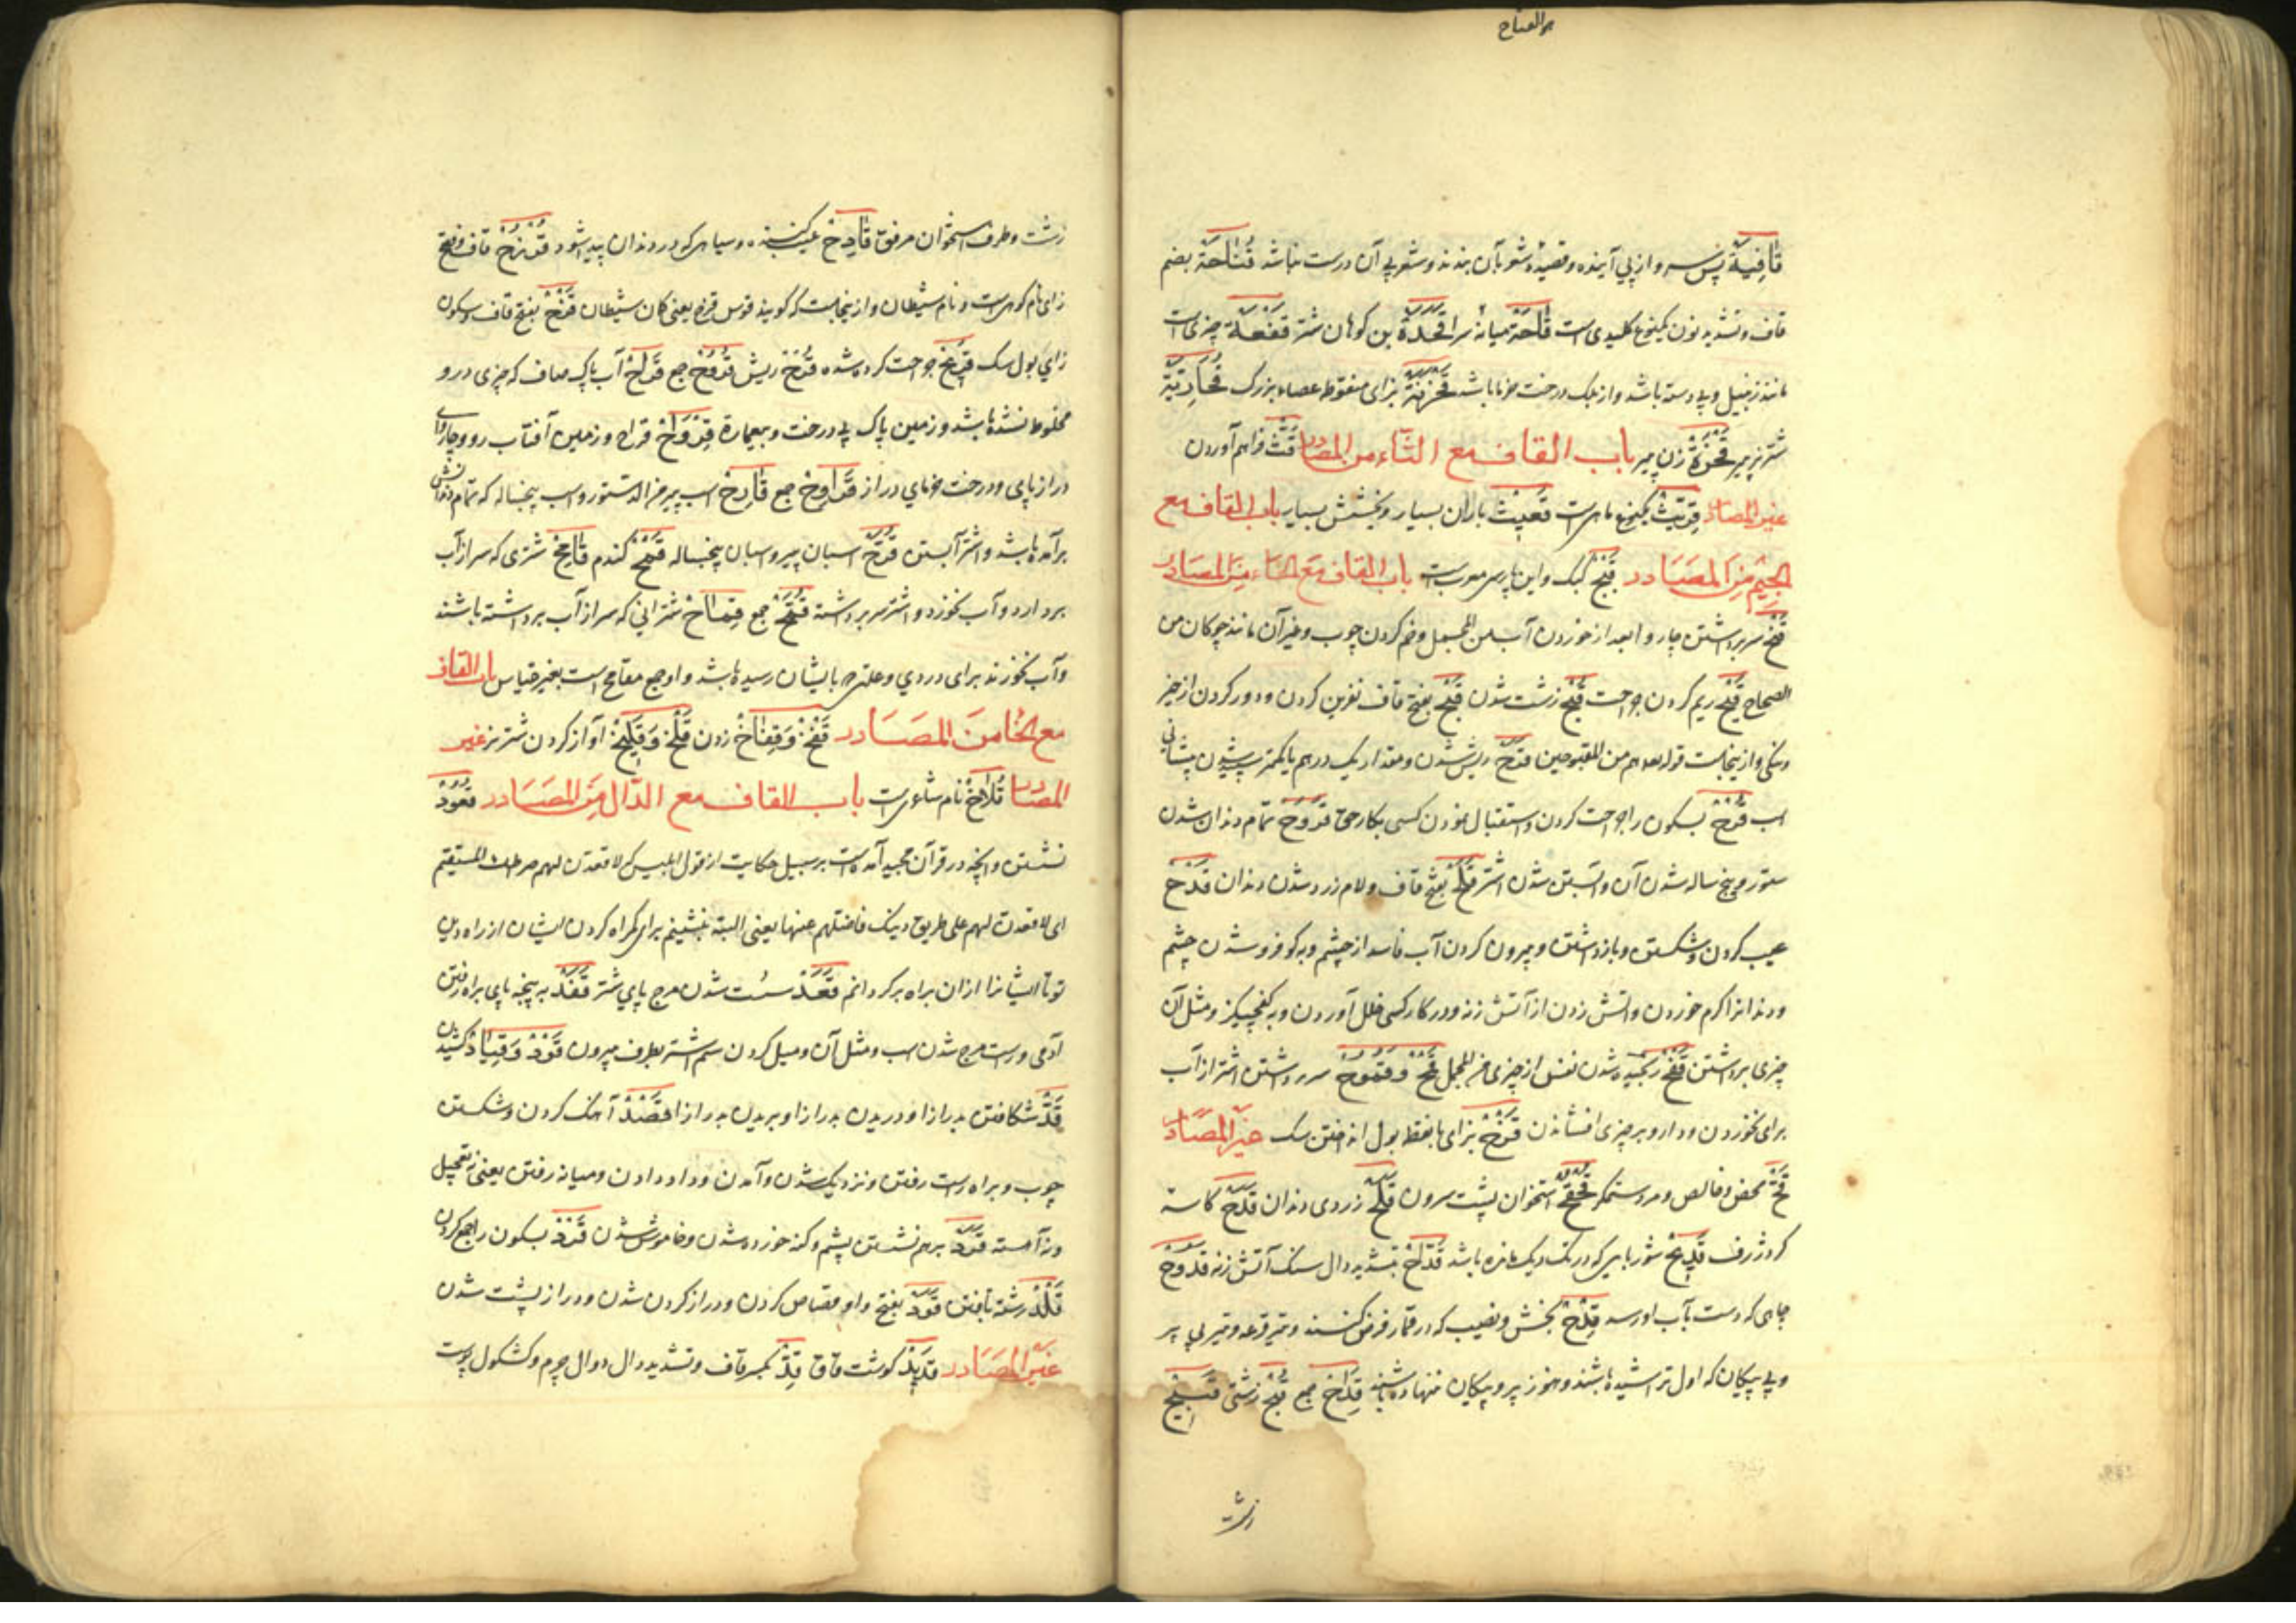 هو الفتاح
قافِیَة پس سر و از پی آینده و قصیده شعر بآن بندند و شعر بی آن درست نباشد قُنّاحَة بضم
قاف و تشدید نون یکنوع کلیدی است قاحَة میانه سرا قَحَدَة بن کوهان شتر قَفْعَة چیزی است
مانند زنبیل و بی دسته باشد و از برک درخت خرما باشد قَحْزَنَة بزای منقوط عصاء بزرک
شتر نر پیر قَحْزَة زن پیر باب القاف مع الثاء من المصادر قَثّ فراهم آوردن
غیر المصادر قِرّیث یکنوع ماهی است قَعِیث باران بسیار و بخشش بسیار باب القاف مع
الجیم من المصادر قَبْج کبک و این پارسی معرب است باب القاف مع الحاء من المصادر
قَمْح سر برداشتن چاروا بعد از خوردن آب من المجمل و خم کردن چوب و غیر آن مانند چوکان من
الصحاح قَیْح ریم کردن جراحت قُبْح زشت شدن قَبْح بفتح قاف نفرین کردن و دور کردن از خیر
و نیکی و از ینجاست قوله تعالی هم من المقبوحین قَرَح ریش شدن و مقدار یک درهم یا کمتر سپید شدن پیشانی
اسب قَرْح بسکون را جراحت کردن و استقبال نمودن کسی بکار حق قُرُوح تمام دندان شدن
ستور و پنج ساله شدن آن و آبستن شدن اشتر قَلَح بفتح قاف و لام زرد شدن دندان قَدْح
عیب کردن و شکستن و باز داشتن و بیرون کردن آب فاسد از چشم و به کو فرو شدن چشم
و دندانرا کرم خوردن و آتش زدن از آتش زنه و در کار کسی خلل آوردن و به کفچلیز و مثل آن
چیزی برداشتن قَنْح رنجیده شدن نفس از چیزی من المجمل قَمْح و قُمُوح سر برداشتن اشتر از آب
برای نخوردن و دارو بر چیزی افشاندن قَزْح بزای با نقطه بول انداختن سک غیر المصادر
قُحّ محض و خالص و مرد ستمکر قُحْقُح استخوان پشت سرون قَلَح زردی دندان قَدَح کاسه
کرد ژرف قَدِیح شوربایی که در تک دیک مانده باشد قَدّاح بتشدید دال سنک آتش زنه قَدُوح
چاهی که دست بآب او رسد قِدْح بخش و نصیب که در قمار فرض کنند و تیر قرعه و تیر بی پر
و بی پیکان که اول تراشیده باشند و هنوز پر و پیکان ننهاده باشند قِداح جمع قُبْح زشتی قَبِیح
زشت
زشت و طرف استخوان مرفق قادِح عیب کننده و سیاهی که در دندان پیدا شود قُزَح قاف و فتح
زای نام کوهی است و نام شیطان و از ینجاست که کویند قوس قزح یعنی کمان شیطان قَزْح بفتح قاف و سکون
زای بول سک قَرِیح جراحت کرده شده قُرْح ریش قُرُوح جمع قَراح آب پاک صاف که چیزی درو
مخلوط نشده باشد و زمین پاک بی درخت و بیعمارة قِرْواح قراح و زمین آفتاب رو و چاروای
دراز پای و درخت خرمای دراز قَراوِح جمع قارِح اسب پیر من الدستور و اسب پنجساله که تمام دندانش
برآمده باشد و اشتر آبستن قُرَّح اسبان پیر و اسبان پنجساله قَمْح کندم قامِح شتری که سر از آب
بردارد و آب نخورد و اشتر سر برداشته قُمَّح جمع قِماح شترانی که سر از آب برداشته باشند
و آب نخورند برای دردی و علتی که بایشان رسیده باشد و او جمع مقامح است بغیر قیاس باب القاف
مع الخاء من المصادر قَفْخ و قِفاخ زدن قَلْخ و قَلِیخ آواز کردن شتر نر غیر
المصادر قُلاخ نام شاعریست باب القاف مع الدال من المصادر قُعُود
نشستن و آنچه در قرآن مجید آمده است بر سبیل حکایت از قول ابلیس که لاقعدن لهم صراطک المستقیم
ای لاقعدن لهم علی طریق دینک فاضلهم عنها یعنی البته بنشینم برای کمراه کردن ایشان از راه دین
تو تا ایشانرا از آن براه برکردانم قَعَد سست شدن مرج پای شتر قَفَد به پنجه پای براه رفتن
آدمی و راست مرج شدن اسب و مثل آن و میل کردن سم اشتر بطرف بیرون قَوْد و قِیاد کشیدن
قَدّ شکافتن بدرازا و دریدن بدرازا و بریدن بدرازا قَصْد آهنک کردن و شکستن
چوب و براه راست رفتن و نزدیک شدن و آمدن و داد دادن و میانه رفتن یعنی نه تعجیل
و نه آهسته قَرَد برهم نشستن پشم و کنه خورده شدن و خاموش شدن قَرْد بسکون را جمع کردن
قَلْد رشته تافتن قَوَد بفتح واو قصاص کردن و دراز کردن شدن و دراز پشت شدن
غیر المصادر قَدِید کوشت قاق قِدّ بکسر قاف و تشدید دال دوال چرم و کشکول پوست